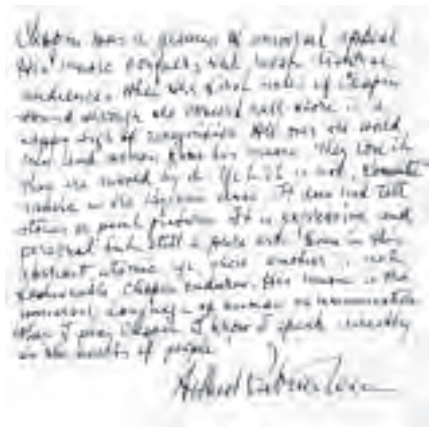 Chopin was a genius of universal appeal.
His music conquers the most diverse
audiences. When the first notes of Chopin
sound through the concert hall there is a
happy sigh of recognition. All over the world
men and women know his music. They love it.
They are moved by it. Yet it is not "Romantic
music" in the Byronic sense. It does not tell
stories or paint pictures. It is expressive and
personal but still a pure art. Even in this
abstract atomic age, where emotion is not
fashionable, Chopin endures. His music is the
universal language of human communication.
When I play Chopin I know I speak directly
to the hearts of people!
Arthur Rubinstein